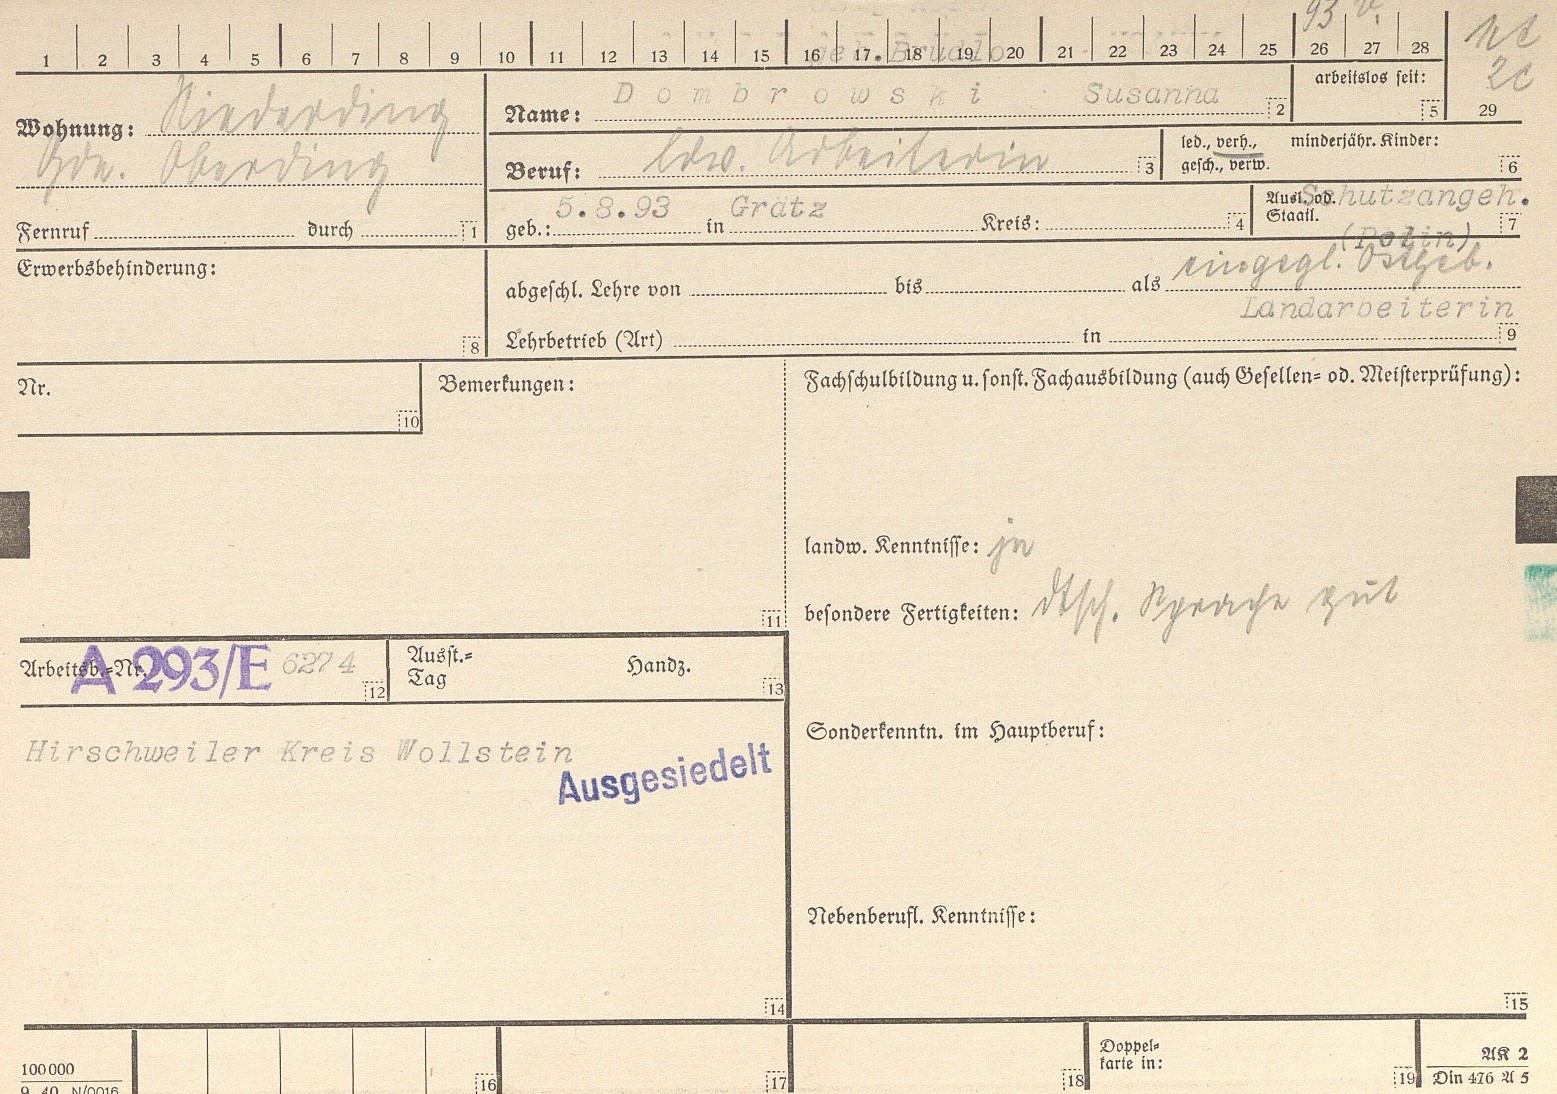 93 v.
1 2 3 4 5 6 7 8 9 10 11 12 13 14 15 16 17 18 19 20 21 22 23 24 25 26 27 28
geb. Brudlo
2c
29
arbeitslos seit:
5
Wohnung: Niederding
Gde. Oberding
Name: Dombrowski Susanna
2
Beruf: ldw. Arbeiterin
3
led., verh.,
gesch., verw.
minderjähr. Kinder:
6
Fernruf durch
1
geb.: 5.8.93 in Grätz Kreis:
4
Ausl. od.
Staatl.
Schutzangeh.
(Polin)
7
Erwerbsbehinderung:
8
eingegl. Ostgeb.
abgeschl. Lehre von bis als
Landarbeiterin
Lehrbetrieb (Art) in
9
Nr.
10
Bemerkungen:
11
Fachschulbildung u. sonst. Fachausbildung (auch Gesellen- od. Meisterprüfung):
landw. Kenntnisse: ja
besondere Fertigkeiten: dtsch. Sprache gut
Arbeitsb.-Nr. A 293/E 6274
12
Ausst.-
Tag
Handz.
13
Hirschweiler Kreis Wollstein
Ausgesiedelt
14
Sonderkenntn. im Hauptberuf:
Nebenberufl. Kenntnisse:
15
100000
9. 40. N/0016
16
17
18
Doppel-
karte in:
19
AK 2
Din 476 A 5